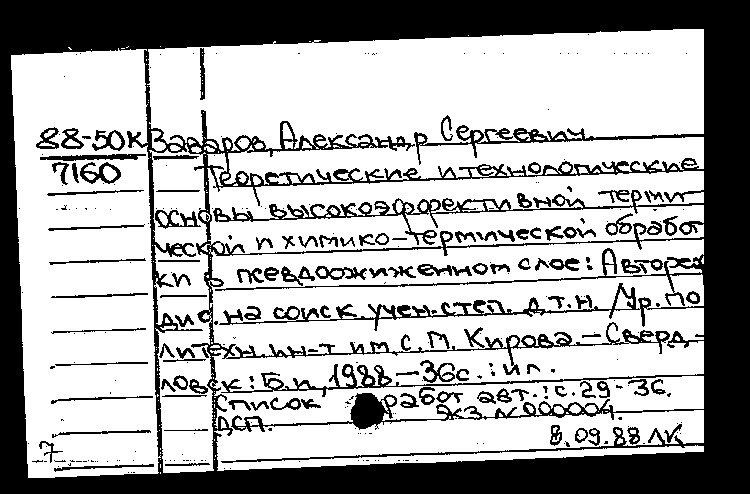 88-50К Заваров, Александр Сергеевич.
7160 Теоретические и технологические
основы высокоэффективной терми-
ческой и химико-термической обработ
ки в псевдоожиженном слое: Автореф
дис. на соиск. учен. степ. д.т.н. /Ур. по
литехн. ин-т им. С.М. Кирова.-Сверд-
ловск: Б.и., 1988.-36с.: ил.
Список работ авт.: с.29-36.
ДСП. Экз. N000004.
8.09.88 ЛК
7